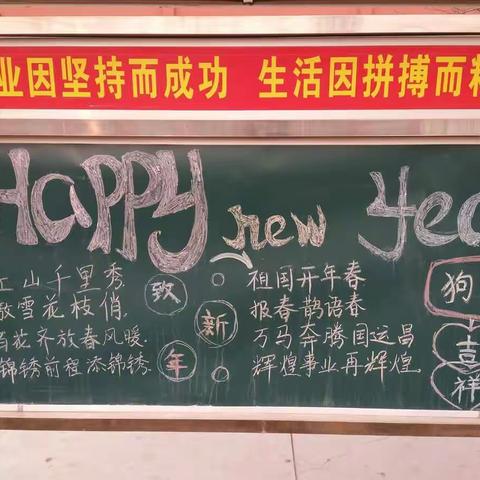 业因坚持而成功 生活因拼搏而
Happy new Yea
山千里秀,
雪花枝俏,
百花齐放春风暖.
锦锈前程添锦锈.
致
新
年
祖国开年春
报春鹊语春
万马奔腾国运昌
辉煌事业再辉煌.
狗
喜
祥